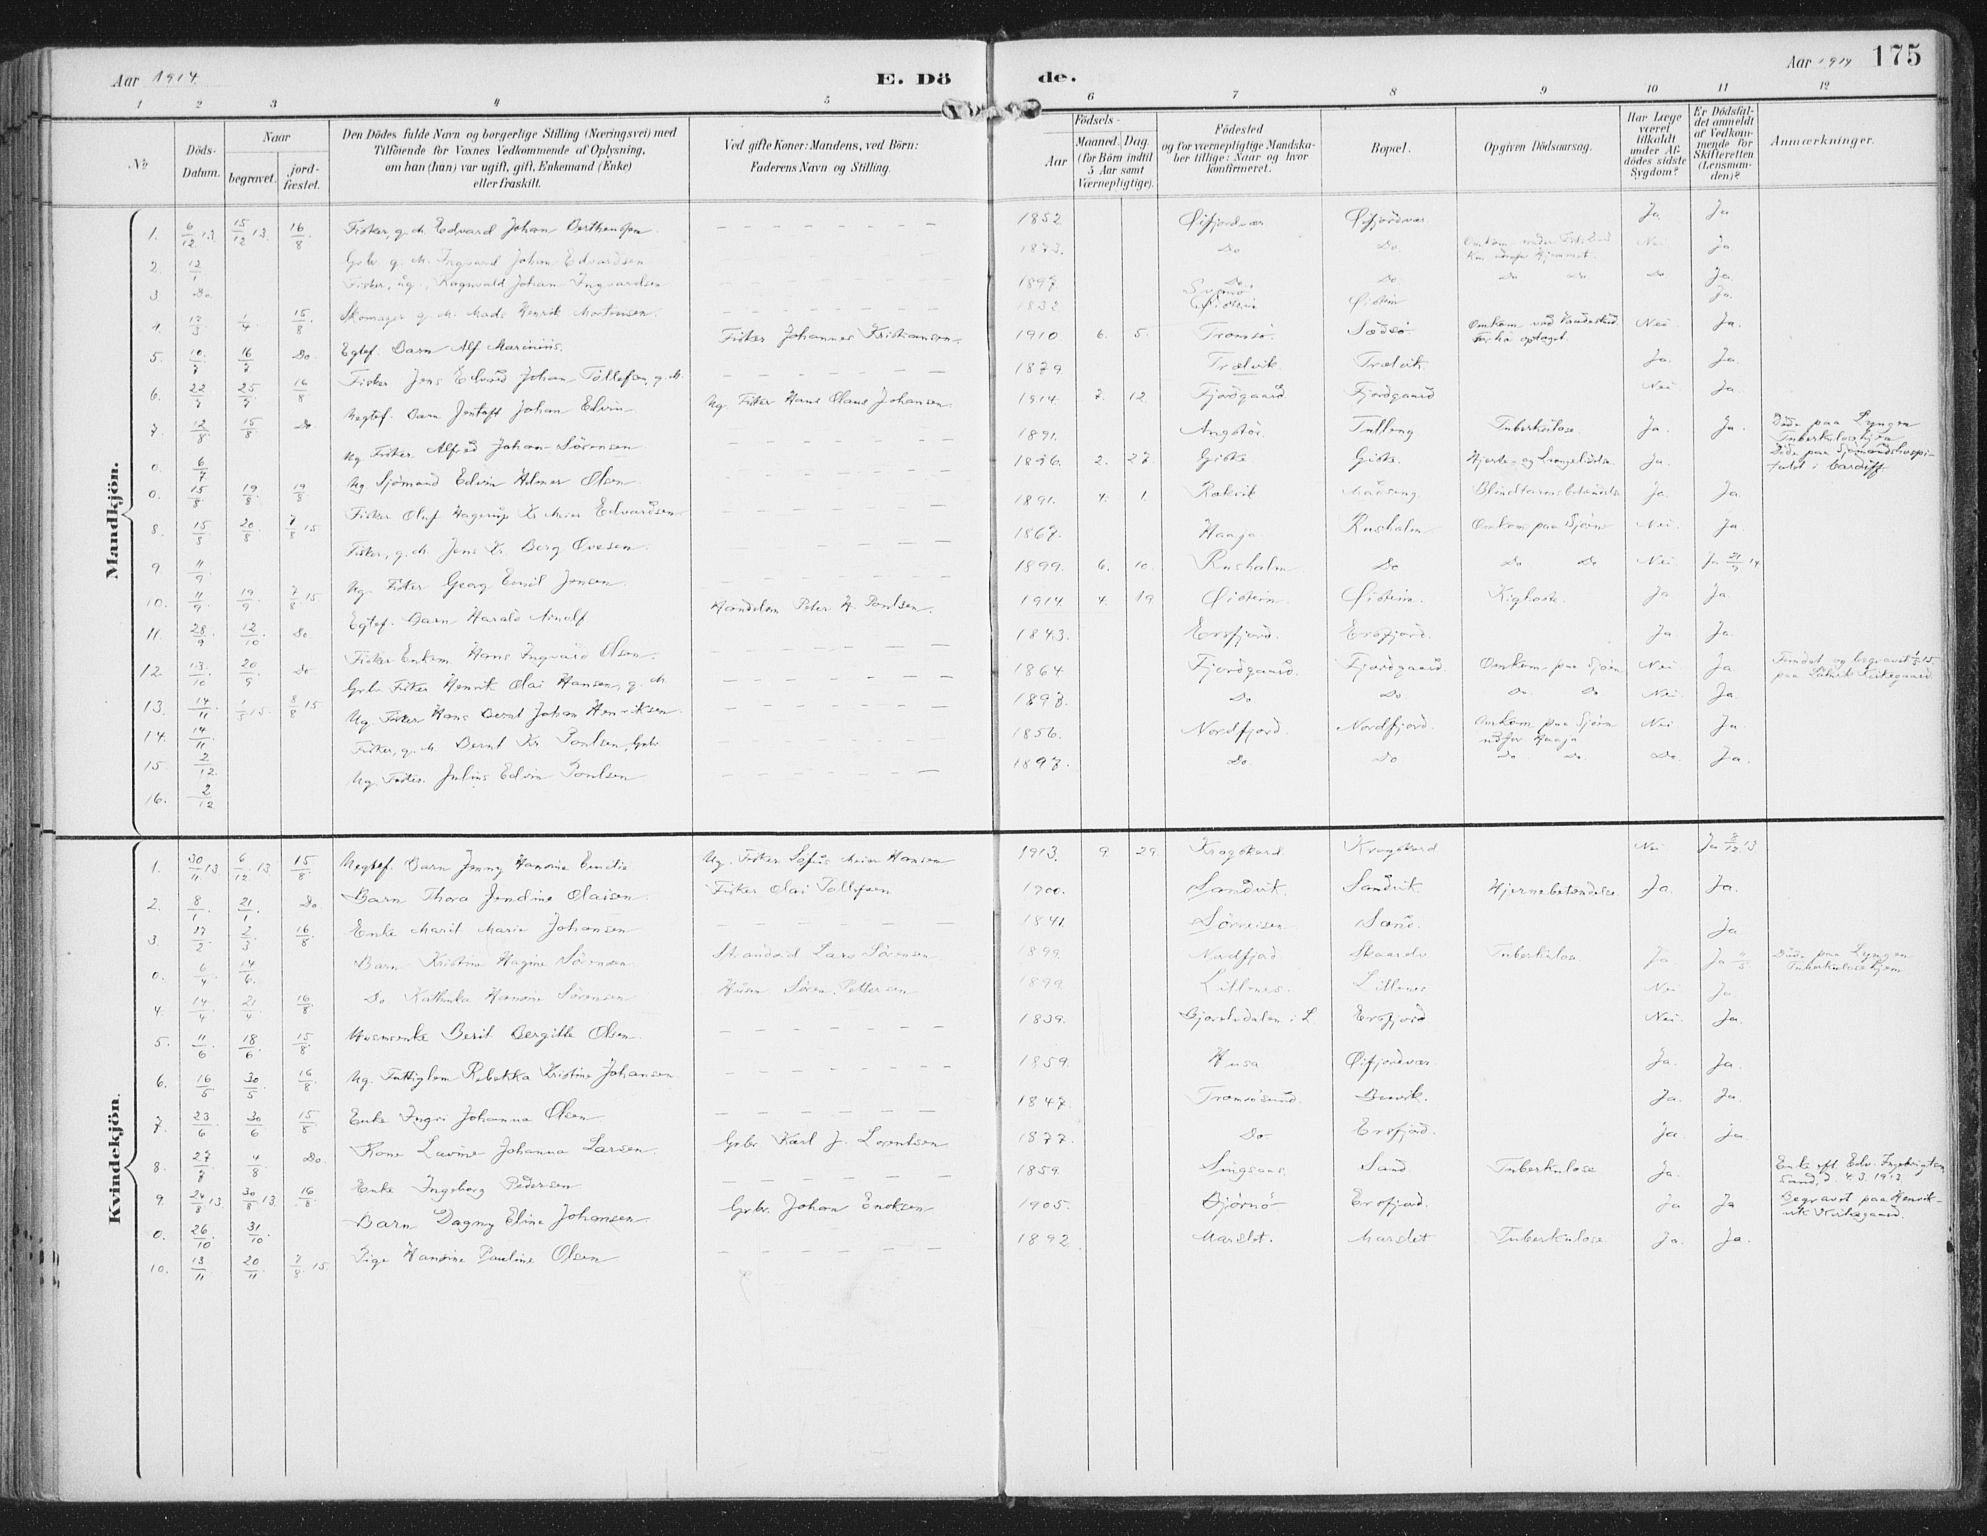 Aar 1914.
E. Dö
de.
Aar 1914
175
1 2 3 4 5 6 7 8 9 10 11 12
No
Döds-
Datum.
Naar
begravet.
jord-
fæstet.
Den Dödes fulde Navn og borgerlige Stilling (Næringsvei) med
Tilföiende for Voxnes Vedkommende af Oplysning,
om han (hun) var ugift, gift, Enkemand (Enke)
eller fraskilt.
Ved gifte Koner: Mandens, ved Börn:
Faderens Navn og Stilling.
Födsels-
Aar
Maaned. Dag.
(for Börn indtil
5 Aar samt
Værnepligtige).
Födested
og for værnepligtige Mandska-
ber tillige: Naar og hvor
konfirmeret.
Bopæl.
Opgiven Dödsaarsag.
Har Læge
været
tilkaldt
under Af-
dödes sidste
Sygdom?
Er Dödsfal-
det anmeldt
af Vedkom-
mende for
Skifteretten
(Lensman-
den)?
Anmærkninger.
Mandkjön.
1. 6/12 13 15/12 13. 16/8 Fisker, g. m. Edvard Johan Berthensen 1852 Öifjordvær Öifjordvær Ja Ja
2. 12/1 Gbr. g. M. Ingvard Johan Edvardsen 1873. Do Do. Nei Ja
3 Do Fisker, ug., Ragnvald Johan Ingvardsen 1897 Do Do. Do Do Do Ja.
4. 17/3 1/4 15/8 Skomager g. M. Mads Henrik Mortensen. 1832 Öistein Ja.
5. 10/7 16/7 Do Egtef. Barn Alf Marinius. Fisker Johannes Kristiansen 1910 6. 5. Tromsö. Sædsö Nei Ja.
6. 22/7 25/7 16/8 Fisker Jens Edvard Johan Tollefsen, g. m. 1879 Trælvik Trælvik Ja. Ja.
7. 12/8 15/8 Do Uegtef. Barn Jentoft Johan Edvin Ug. Fisker Hans Olaus Johansen 1914 7. 12 Fjordgaard Fjordgaard Nei Ja.
0. 6/7 Ug Fisker Alfred Johan Sörensen 1891. Angstör Tulleng Tuberkulose Ja. Ja. Döde paa Lyngen Tuberkulosehjem
0. 15/8 19/8 19/8 Ug Sjömand Edvin Hilmer Olsen 1896. 2. 27 Giske Giske Ja. Döde paa Sjömandshospi- talet i Cardiff
8. 15/8 20/8 7/8 15 Fisker Oluf Hagerup Kr Meier Edvardsen 1891. 4. 1. Rækvik Blindtarmsbetændelse Ja. Ja.
9. 11/9 Fisker, g. m. Jens Kr. Berg Ovesen 1867. Haaja Rusholm Omkom paa Sjøen Nei Ja
10. 11/9 19/9 7/8 15 Ug. Fisker Georg Emil Jensen 1899. 6. 10. Rusholm Do Do Do Nei Ja 21/9 14
11. 28/9 12/10 Do Egtef. Barn Harald Arnolf Handelsm Peter H. Poulsen. 1914. 4. 19 Öistein. Öistein. Kighoste. Ja Ja.
12. 13/10 20/9 Do Fisker Enkem. Hans Ingvard Olsen. 1843. Ersfjord. Ersfjord. Ja. Ja.
13. 14/11 1/5 15. 8/8 15 Gbr. Fisker Henrik Olai Hansen, g. M 1864 Fjordgaard. Fjordgaard. Omkom paa Sjøen Nei Ja Fundet og begravet 1/5 15. paa Kirkegaard.
14. 14/11 Ug. Fisker Hans Bernt Johan Henriksen. 1893. Do Do. Do Do Nei Ja
15. 2/12 Fisker, g. m. Bernt Kr. Poulsen, Gbr 1856. Nordfjord. Nordfjord. Omkom paa Sjøen udfor Haaja Nei Ja
16. 2/12 Ug. Fisker. Julius Edvin Poulsen 1897. Do. Do Do Do Do. Ja.
Kvindekjön.
1. 30/11 13 6/12 13 15/8. Uegtef. Barn Jenny Hansine Emilie Ug. Fisker Sofus Meier Hansen 1913. 9 29. Kragskard. Kragskard Nei Ja 8/12 13
2. 8/1 21/1. Do Barn Thora Jendine Olaisen. Fisker Olai Tollefsen 1900. Sandvik Sandvik Hjernebetændelse Ja. Ja.
3. 17/2 2/3 16/8 Enke Marit Marie Johansen 1841. Sörreisen Sand. Ja
0. 6/4 14/6. Barn Kristine Hagine Sörensen Strandsid Lars Sörensen 1899. Nordfjord Tuberkulose Ja Ja Döde paa Lyngen Tuberkulosehjem
4. 14/4 21/4 16/8 Do Kathinka Hansine Sörensen Husm Sören Pettersen 1899. Lillenes. Lillenes Nei Ja
5. 11/6 18/6. 15/8 Husmenke Berit Bergitte Olsen. 1839. Ersfjord Nei. Ja.
6. 16/5 30/5 16/8 Ug. Fattiglem Rebekka Kristine Johansen 1859. Husa Öifjordvær. Ja. Ja.
7. 23/6 30/6 15/8 Enke Ingri Johanna Olsen 1847. Tromsösund. Buvik. Ja. Ja.
8. 27/7 4/8 Do. Kone Lavine Johanna Larsen. Gbr. Karl J. Lorentsen 1877. Do Ersfjord. Ja. Ja.
9 24/8 13. 30/8 13. 16/8. Enke Ingeborg Pedersen 1859. Singsaas. Sand Tuberkulose Ja. Enke eft. Edv. Ingebrigtsen Sand, d. 4.3.1913
0. 26/10 31/10 Barn Dagny Eline Johansen. Gbr. Johan Enoksen 1905. Björnör Ersfjord. Ja Ja Begravet paa Henrik- vik Kirkegaard.
10. 13/11 20/11 7/8 15 Pige Hansine Pauline Olsen 1892. Marslet. Marslet Tuberkulose. Ja. Ja.